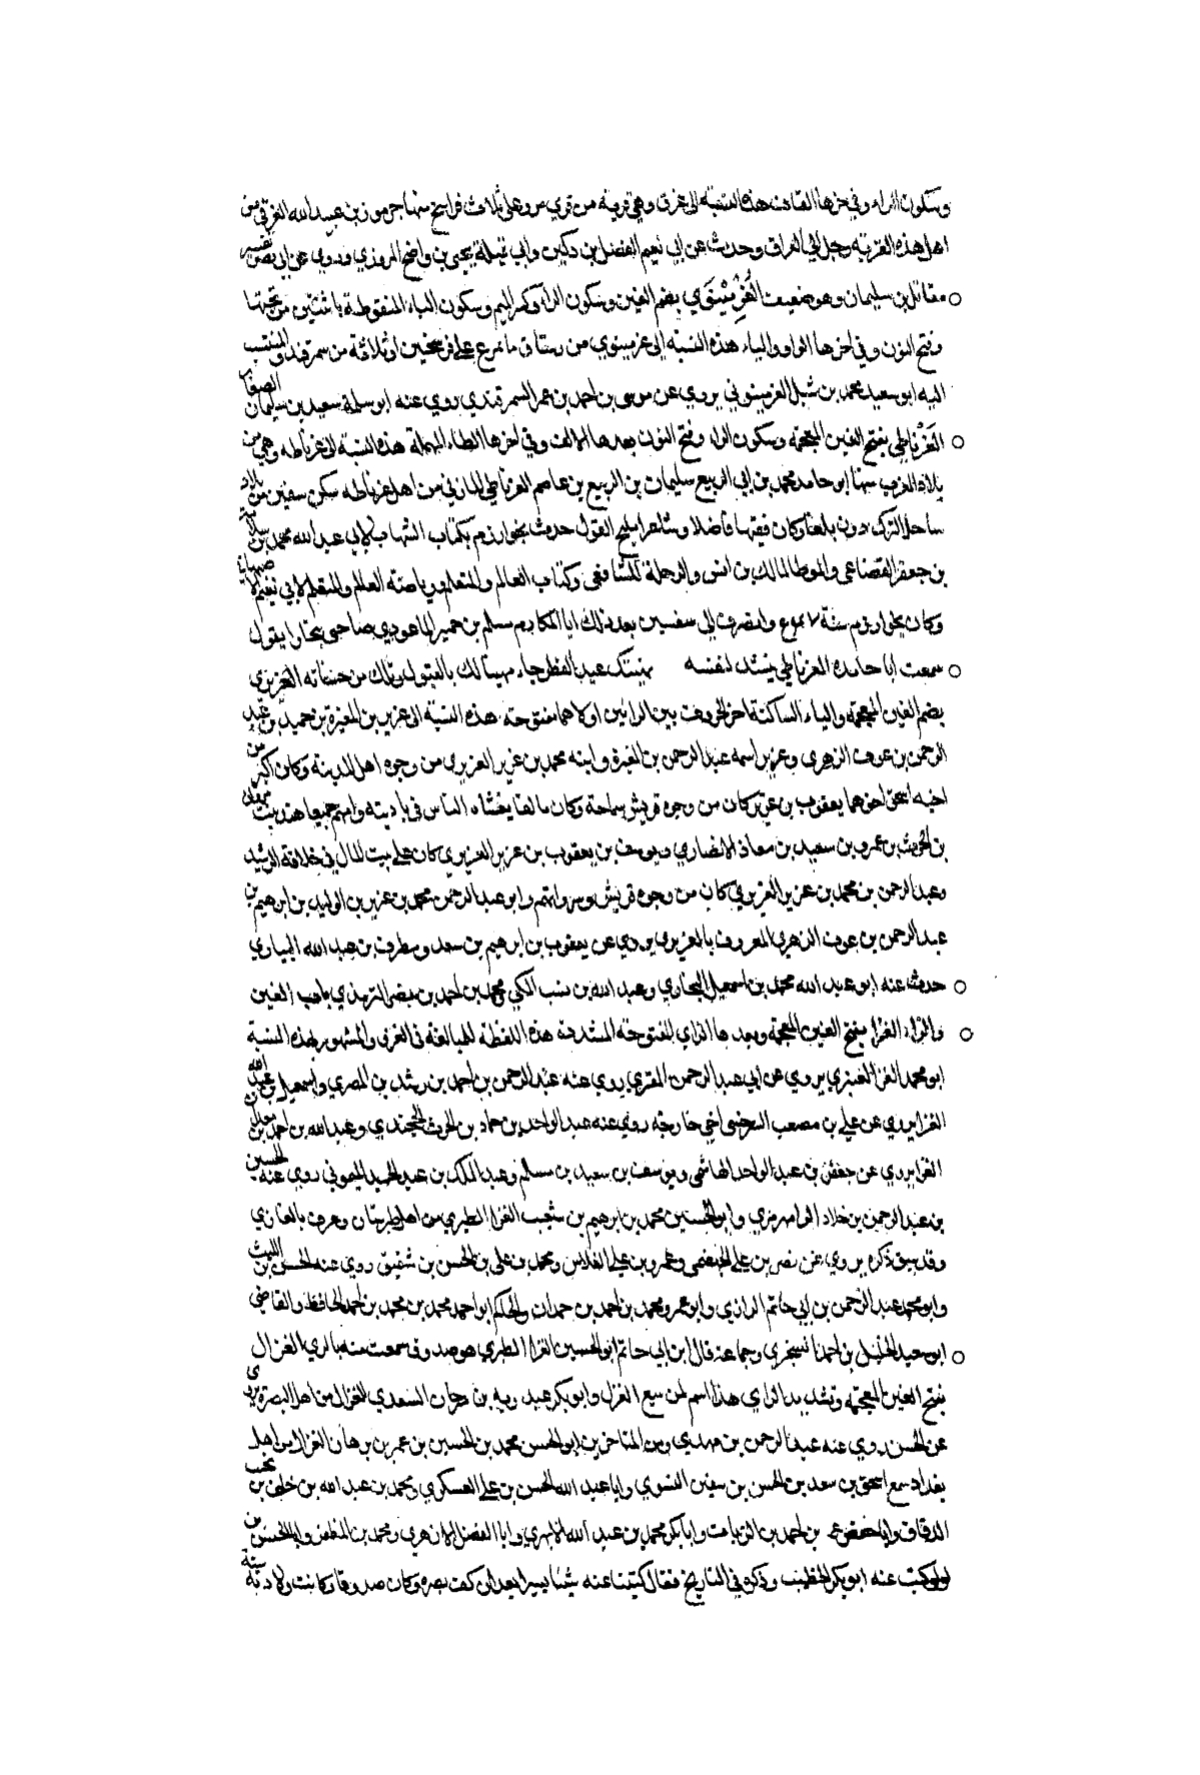 وسكون الراء وفي اخرها القاف هذه النسبة الى غرق وهي قرية من قرى مرو على ثلاث فراسخ منها جرموز بن عبيد الله الغرقي من
اهل هذه القرية رحل الى العراق وحدث عن ابي نعيم الفضل بن دكين وابي تميلة يحيى بن واضح المروزي وروى عن ابي نصر تفسير
مقاتل بن سليمان وهو ضعيف الغُرْمِيْنَوي بضم الغين وسكون الراء وكسر الميم وسكون الياء المنقوطة باثنتين من تحتها
وفتح النون وفي اخرها الواو والياء هذه النسبة الى غرمينوى من رستاق مايمرغ على فرسخين او ثلاثة من سمرقند والمنتسب
اليه ابو سعيد محمد بن شبل الغرمينوني يروي عن موسى بن احمد بن عمر السمرقندي روى عنه ابو سلمة سعيد بن سليمان الصفار
الغَرْناطي بفتح الغين المعجمة وسكون الراء وفتح النون بعدها الالف وفي اخرها الطاء المهملة هذه النسبة الى غرناطه وهي من
بلاد الغرب منها ابو حامد محمد بن ابي الربيع سليمان بن الربيع بن عاصم الغرناطي المازني من اهل غرناطه سكن سقسين من بلاد
ساحل الترك دون بلغار وكان فقيها فاضلا وشاعرا مليح القول حدث بخوارزم بكتاب الشهاب لابي عبد الله محمد بن سلامة
بن جعفر القضاعي والموطا لمالك بن انس والرحلة للشافعي وكتاب العالم والمتعلم ورياضة العالم والمتعلم لابي نعيم الاصبهاني
وكان بخوارزم سنة وانصرف الى سقسين بعد ذلك ابا المكارم مسلم بن حمير صاحبي ببخارا يقول
سمعت ابا حامد الغرناطي ينشد لنفسه يهنيك عيد الفطر جاء مهنيا لك بالقبول وتلك من حسناته الغزيري
بضم الغين المعجمة والياء الساكنة اخر الحروف بين الرائين اولاهما مفتوحة هذه النسبة الى غرير بن المغيرة بن حميد بن عبد
الرحمن بن عوف الزهري وغرير اسمه عبد الرحمن بن المغيرة وابنه محمد بن غرير الغريري من وجوه اهل المدينة وكان اكبر من
اخيه اسحق اخوهما يعقوب بن غرير كان من وجوه قريش سماحة وكان مالفا يغشاه الناس في باديته وامهم جميعا هند بنت مروان
بن الحرث بن عمرو بن سعيد بن معاذ الانصاري ويوسف بن يعقوب بن غرير الغريري كان على بيت المال في خلافة الرشيد
وعبد الرحمن بن محمد بن غرير الغريري كان من وجوه قريش وسرواتهم وابو عبد الرحمن محمد بن غرير بن الوليد بن ابرهيم بن
عبد الرحمن بن عوف الزهري المعروف بالغريري يروي عن يعقوب بن ابرهيم بن سعد ومطرف بن عبد الله اليساري
حدث عنه ابو عبد الله محمد بن اسمعيل البخاري وعبد الله بن شبيب المكي ومحمد بن احمد بن نصر الترمذي باب الغين
والزاء الغزا بفتح الغين المعجمة وبعدها الزاي المفتوحة المشددة هذه اللفظة للمبالغة في الغزو والمشهور بهذه النسبة
ابو محمد الغزا العنبري يروي عن ابي عبد الرحمن المقري يروي عنه عبد الرحمن بن احمد بن رشد بن المصري واسمعيل بن عبد الله
الغزا يروي عن علي بن مصعب السرخسي اخي خارجة روى عنه عبد الواحد بن حماد بن الحرث الخجندي وعبد الله بن احمد بن معدان
الغزا يروي عن جعفر بن عبد الواحد الهاشمي ويوسف بن سعيد بن مسلم وعبد الملك بن عبد الحميد الميموني روى عنه الحسين
بن عبد الرحمن بن خلاد الرامهرمزي وابو الحسين محمد بن ابرهيم بن شعيب الغزا الطبري من اهل طبرستان وعرف بالغازي
وقد سبق ذكره يروي عن نصر بن علي الجهضمي وعمرو بن علي الفلاس ومحمد بن علي بن الحسن بن شقيق روى عنه الحسن بن الليث
وابو محمد عبد الرحمن بن ابي حاتم الرازي وابو عمرو محمد بن احمد بن حمدان والحاكم ابو احمد محمد بن محمد بن احمد الحافظ والقاضي
ابو سعيد الخليل بن احمد السجزي وجماعة قال ابن ابي حاتم ابو الحسين الغزا الطبري هو صدوق سمعت منه بالري الغزال
بفتح الغين المعجمة وتشديد الزاي هذا اسم لمن يبيع الغزل وابو بكر عبد ربه بن السعدي الغزال من اهل البصرة يروي
عن الحسن روى عنه عبد الرحمن بن مهدي ومن المتاخرين ابو الحسن محمد بن الحسين بن عمر بن برهان الغزال من اهل
بغداد سمع اسحق بن سعد بن الحسن بن سفين النسوي وابا عبد الله الحسن بن علي العسكري ومحمد بن عبد الله بن خلف بن بخيت
الدقاق وابا حفص عمر بن احمد بن الزيات وابا بكر محمد بن عبد الله الابهري وابا الفضل الازهري ومحمد بن المظفر وابا الحسن بن
لولو كتب عنه ابو بكر الخطيب وذكره في التاريخ فقال كتبنا عنه شيئا يسيرا بعد ان كف بصره وكان صدوقا وكانت ولادته سنة